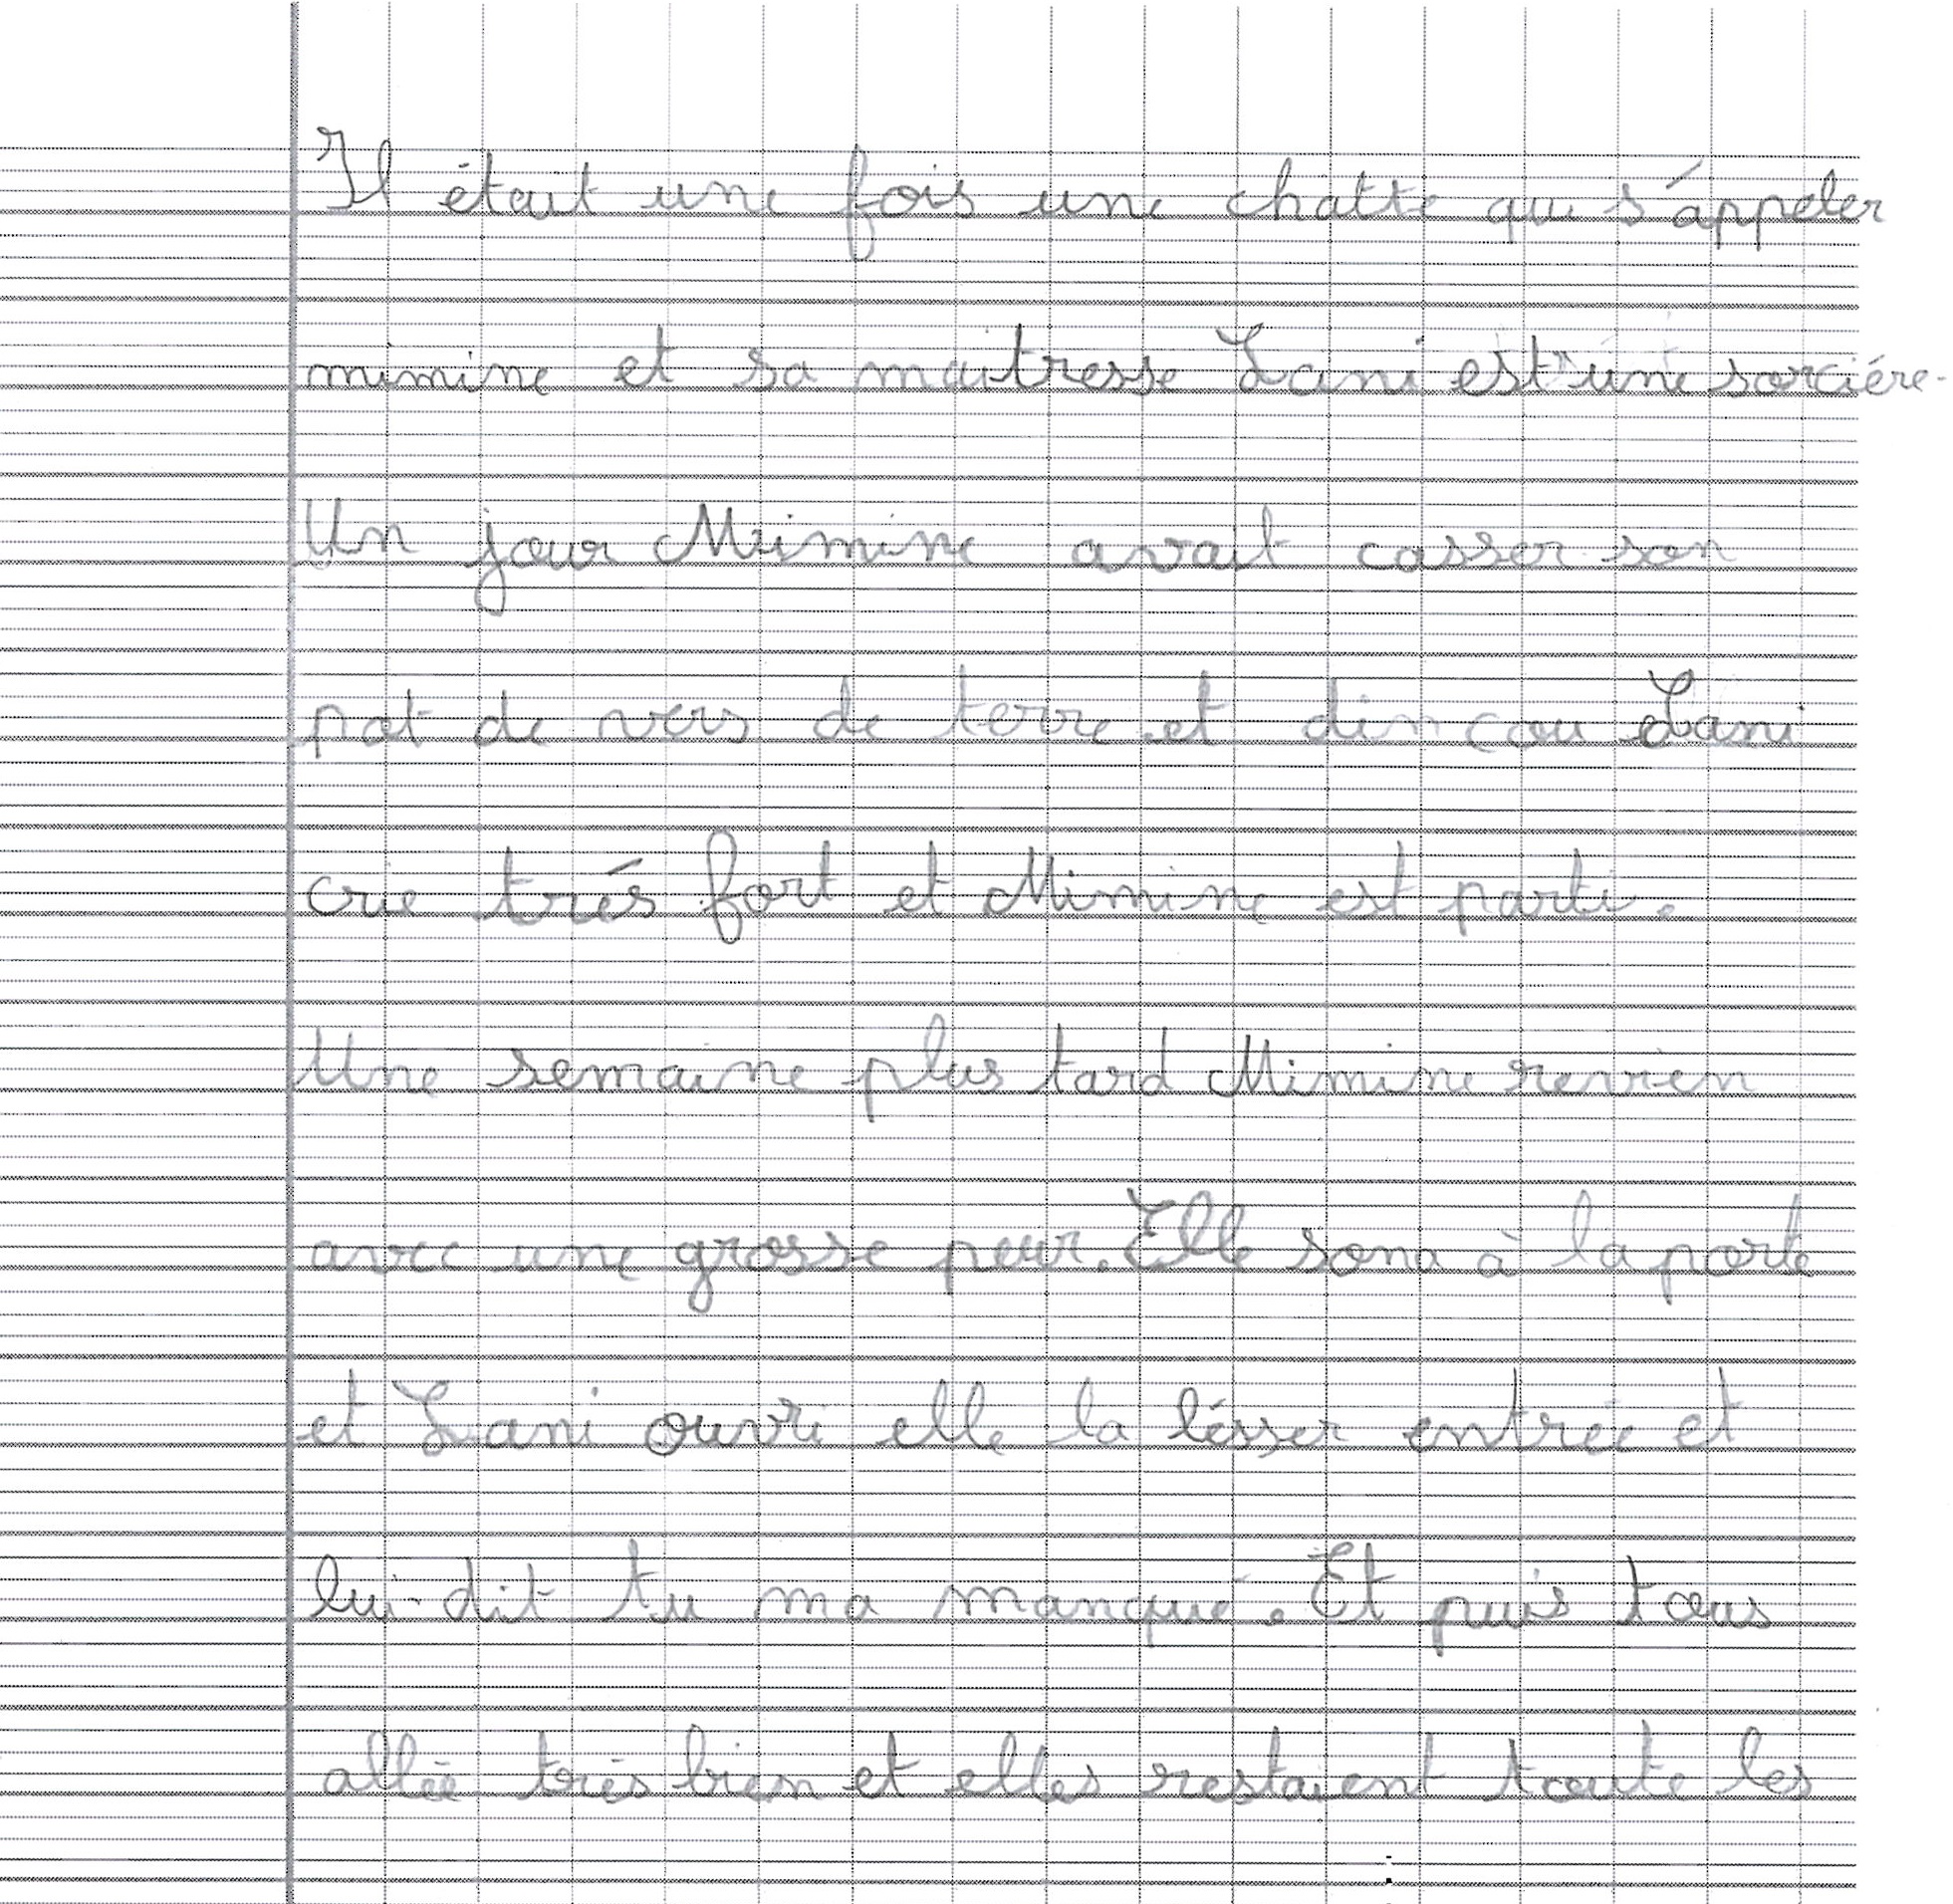 Il était une fois une chatte qui s'appeler
mimine et sa maitresse Lani est une sorciére.
Un jour Mimine avait casser son
pot de vers de terre et din cou Lani
crie trés fort et Mimine est parti.
Une semaine plus tard Mimine revien
avec une grosse peur. Elle sona à la porte
et Lani ouvri elle la lésser entrée et
lui-dit tu ma manqué. Et puis tous
allée trés bien et elles restaient toute les